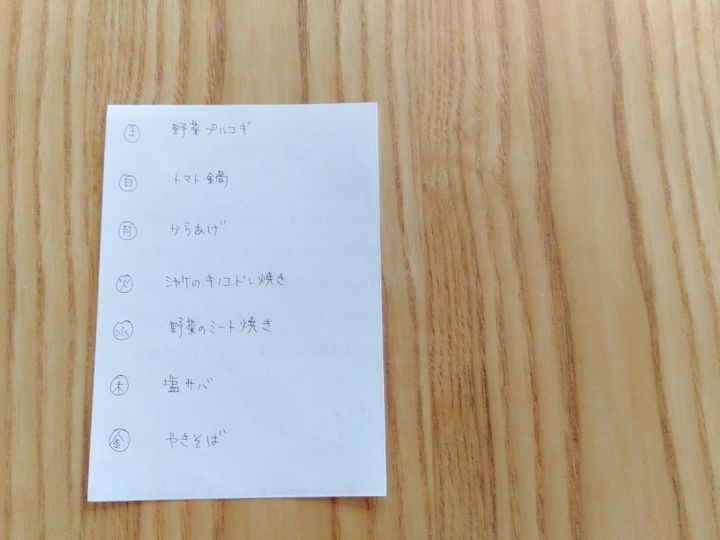 土 野菜プルコギ
日 トマト鍋
月 からあげ
火 シャケのキノコドレ焼き
水 野菜のミート焼き
木 塩サバ
金 やきそば